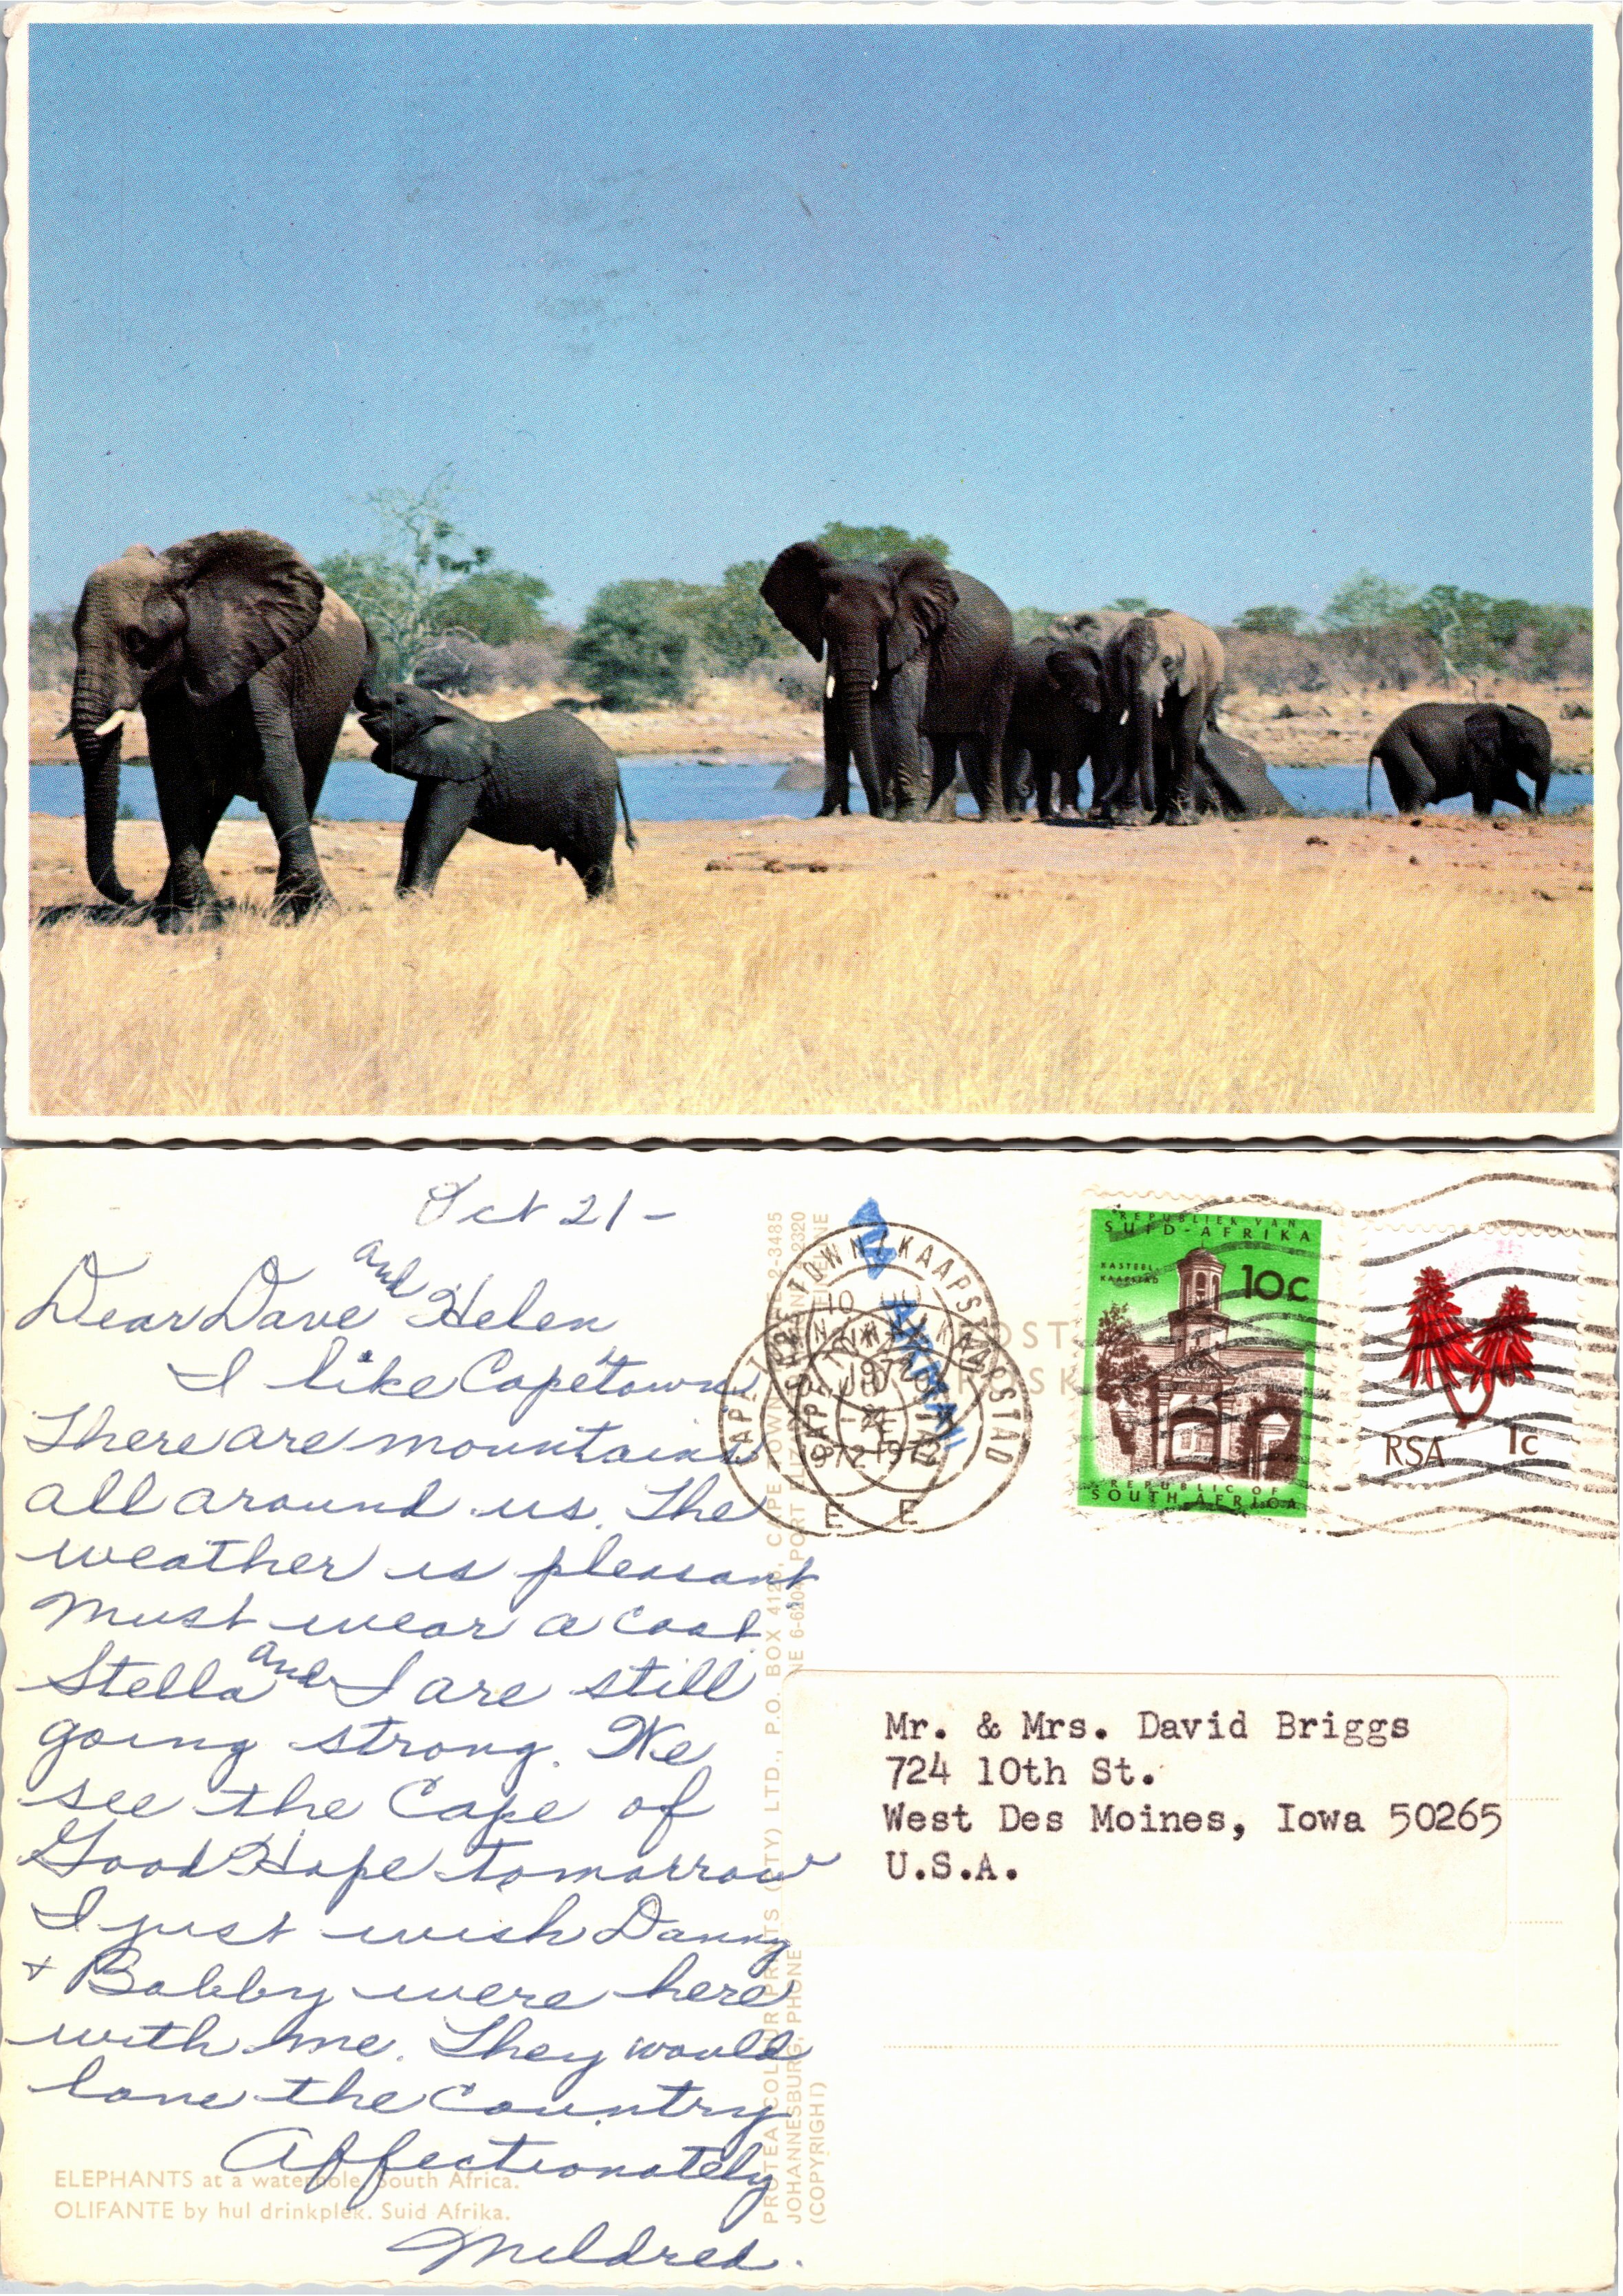 Oct 21-
Dear Dave and Helen
I like Capetown.
There are mountains
all around us. The
weather is pleasant
must wear a coat.
Stella and I are still
going strong. We
see the Cape of
Good Hope tomorrow
I just wish Danny
+ Bobby were here
with me. They would
love the country
Affectionately
Mildred.
ELEPHANTS at a waterhole, South Africa.
OLIFANTE by hul drinkplek. Suid Afrika.
PROTEA COLOUR PRINTS (PTY) LTD., P.O. BOX 4126, CAPE TOWN, 2-3485
JOHANNESBURG, PHONE NE 6-6204, PORT ELIZ 2320
(COPYRIGHT)
CAPE TOWN KAAPSTAD
1972
1972 1972
E E
REPUBLIEK VAN
SUID-AFRIKA
KASTEEL-
KAAPSTAD
10c
REPUBLIC OF
SOUTH AFRICA
RSA 1c
Mr. & Mrs. David Briggs
724 10th St.
West Des Moines, Iowa 50265
U.S.A.